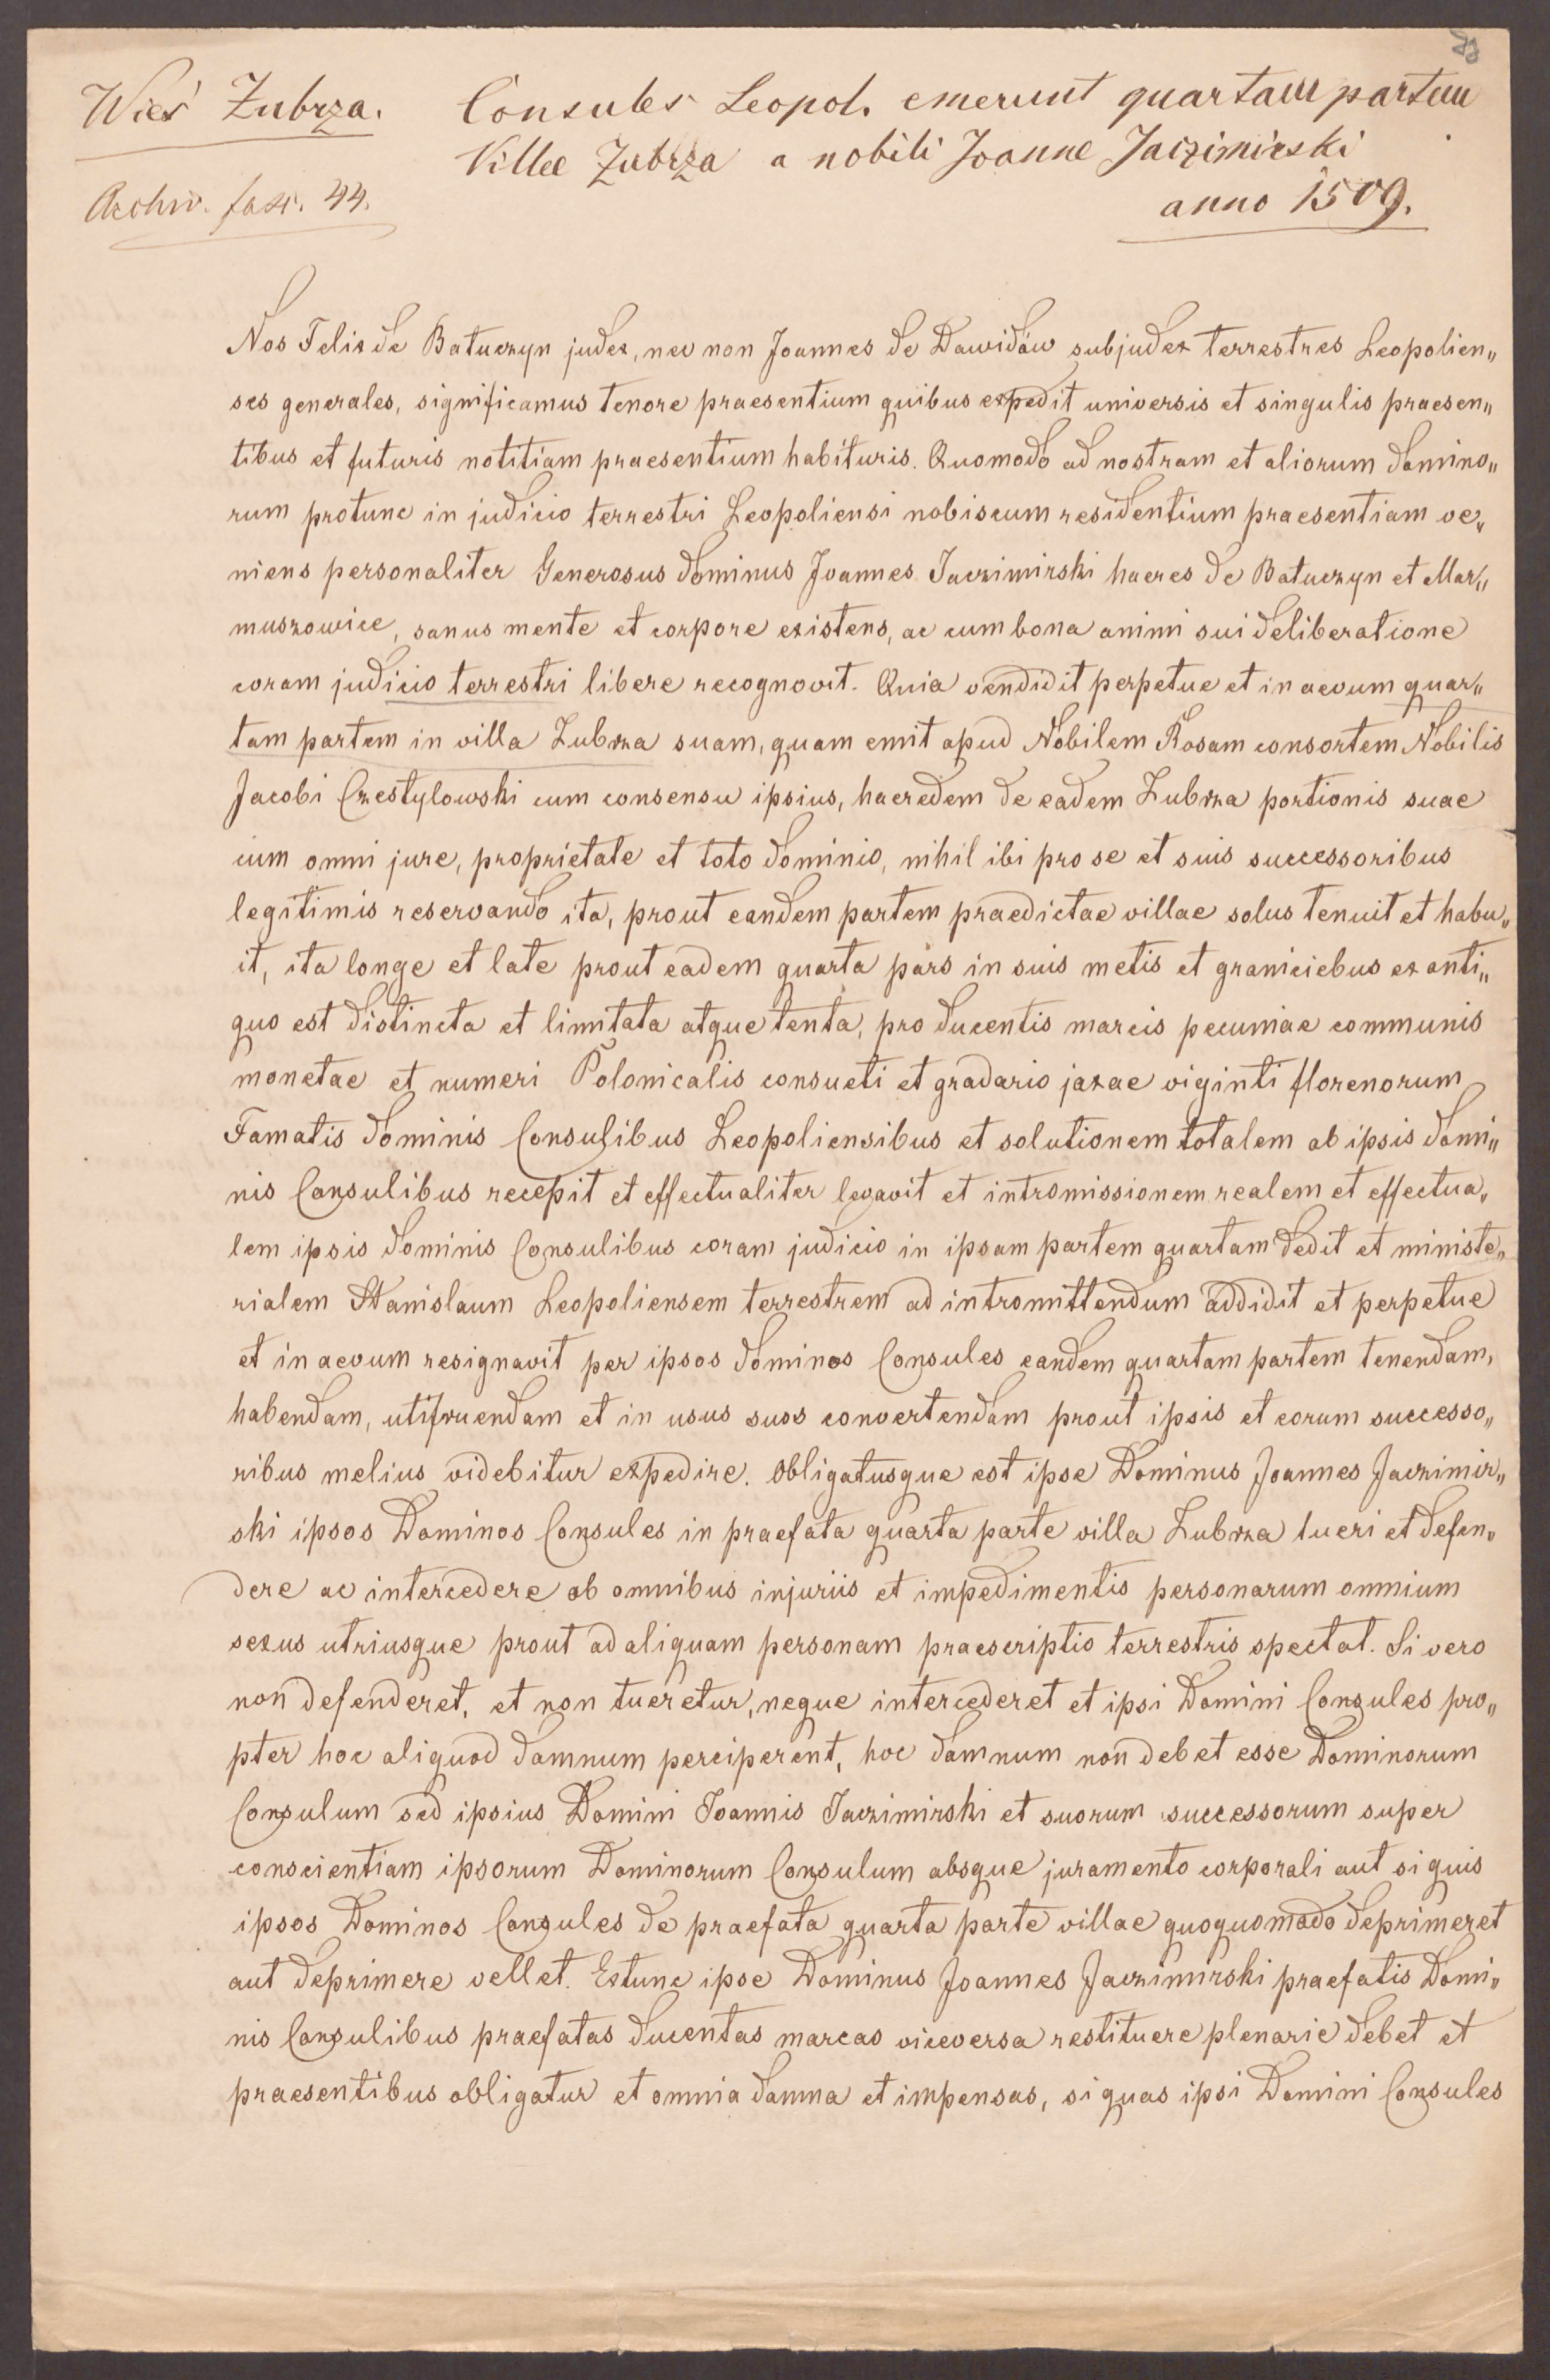 Wieś Zubrza. Consules Leopol. emerunt quartam partem
Villae Zubrza a nobili Joanne Jaczimirski
Archiv. fasc. 44.
anno 1509.
Nos Felix de Batuczyn judex, nec non Joannes de Dawidów subjudex terrestres Leopolien„
ses generales, significamus tenore praesentium quibus expedit universis et singulis praesen„
tibus et futuris notitiam praesentium habituris. Quomodo ad nostram et aliorum domino„
rum protunc in judicio terrestri Leopoliensi nobiscum residentium praesentiam ve„
niens personaliter Generosus dominus Joannes Jaczimirski haeres de Batuczyn et Mar„
muszowice, sanus mente et corpore existens, ac cum bona animi sui deliberatione
coram judicio terrestri libere recognovit. Quia vendidit perpetue et in aevum quar„
tam partem in villa Zubrza suam, quam emit apud Nobilem Rosam consortem Nobilis
Jacobi Czestylowski cum consensu ipsius, haeredem de eadem Zubrza portionis suae
cum omni jure, proprietate et toto dominio, nihil ibi pro se et suis successoribus
legitimis reservando ita, prout eandem partem praedictae villae solus tenuit et habu„
it, ita longe et late prout eadem quarta pars in suis metis et graniciebus ex anti„
quo est distincta et limitata atque tenta, pro ducentis marcis pecuniae communis
monetae et numeri Polonicalis consueti et gradario jaxae viginti florenorum
Famatis dominis Consulibus Leopoliensibus et solutionem totalem ab ipsis domi„
nis Consulibus recepit et effectualiter levavit et intromissionem realem et effectua„
lem ipsis dominis Consulibus coram judicio in ipsam partem quartam dedit et ministe„
rialem Stanislaum Leopoliensem terrestrem ad intromittendum addidit et perpetue
et in aevum resignavit per ipsos dominos Consules eandem quartam partem tenendam,
habendam, utifruendam et in usus suos convertendam prout ipsis et eorum successo„
ribus melius videbitur expedire. Obligatusque est ipse Dominus Joannes Jaczimir„
ski ipsos Dominos Consules in praefata quarta parte villa Zubrza tueri et defen„
dere ac intercedere ab omnibus injuriis et impedimentis personarum omnium
sexus utriusque prout ad aliquam personam praescriptio terrestris spectat. Si vero
non defenderet, et non tueretur, neque intercederet et ipsi Domini Consules pro„
pter hoc aliquod damnum perciperent, hoc damnum non debet esse Dominorum
Consulum sed ipsius Domini Joannis Jaczimirski et suorum successorum super
conscientiam ipsorum Dominorum Consulum absque juramento corporali aut si quis
ipsos Dominos Consules de praefata quarta parte villae quoquomodo deprimeret
aut deprimere vellet. Extunc ipse Dominus Joannes Jaczimirski praefatis Domi„
nis Consulibus praefatas ducentas marcas viceversa restituere plenarie debet et
praesentibus obligatur et omnia damna et impensas, si quas ipsi Domini Consules